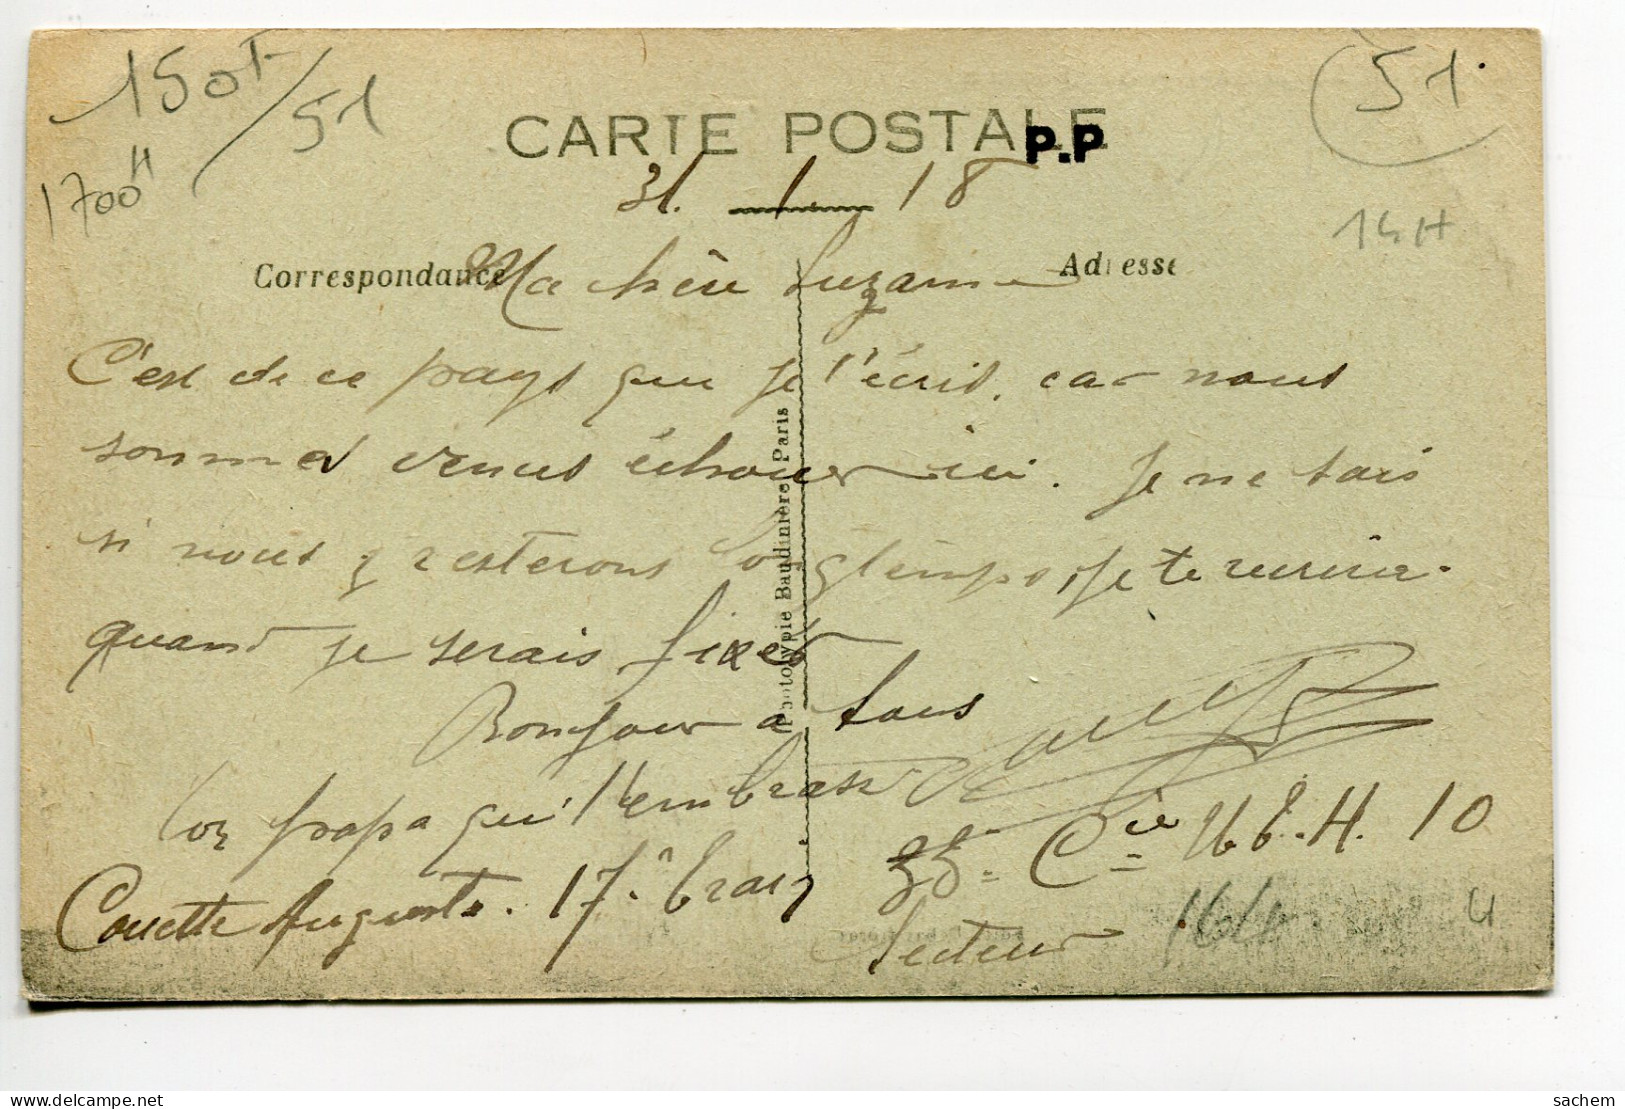 150F/51
51.
1700H
CARTE POSTALE
P.P
31. 1. 18
14H
Correspondance
Adresse
Ma chère Suzanne
C'est de ce pays que je t'écris, car nous
sommes venus échouer ici. Je ne sais
si nous y resterons longtemps, je te récrirai
quand je serais fixer
Bonjour à tous
Ton papa qui t'embrasse
Couette Auguste. 17e 35e Cie 10
Secteur
Phototypie Baudinière, Paris
sachem